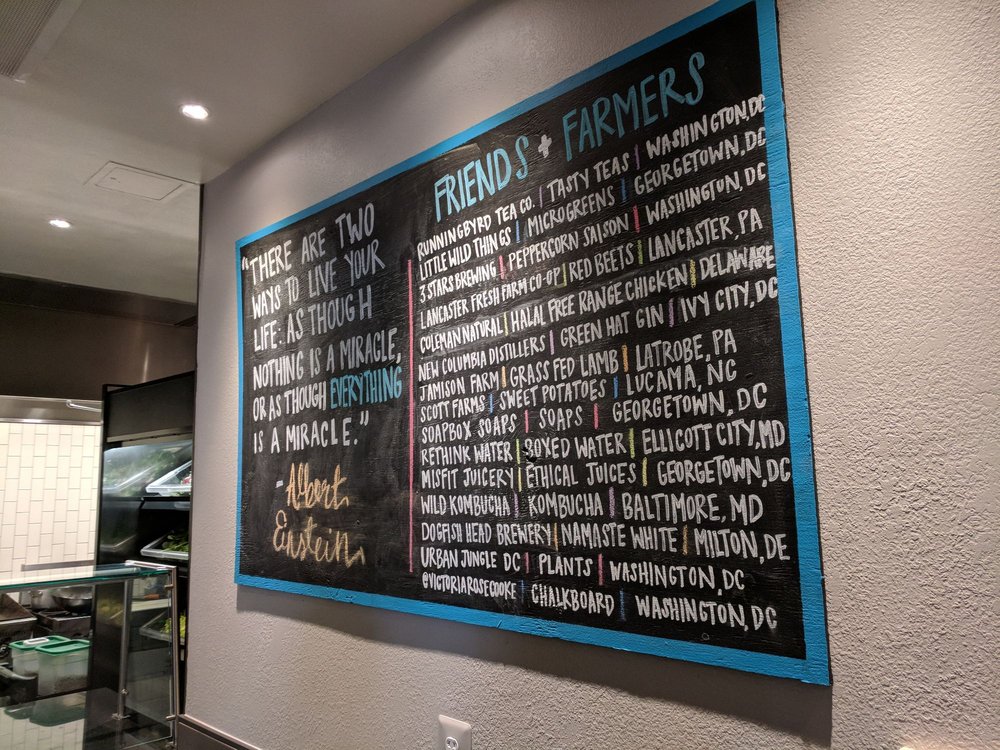 "THERE ARE TWO
WAYS TO LIVE YOUR
LIFE: AS THOUGH
NOTHING IS A MIRACLE,
OR AS THOUGH EVERYTHING
IS A MIRACLE."
- Albert
Einstein
FRIENDS + FARMERS
RUNNINGBYRD TEA CO. | TASTY TEAS | WASHINGTON, DC
LITTLE WILD THINGS | MICROGREENS | GEORGETOWN, DC
3 STARS BREWING | PEPPERCORN SAISON | WASHINGTON, DC
LANCASTER FRESH FARM CO-OP | RED BEETS | LANCASTER, PA
COLEMAN NATURAL | HALAL FREE RANGE CHICKEN | DELAWARE
NEW COLUMBIA DISTILLERS | GREEN HAT GIN | IVY CITY, DC
JAMISON FARM | GRASS FED LAMB | LATROBE, PA
SCOTT FARMS | SWEET POTATOES | LUCAMA, NC
SOAPBOX SOAPS | SOAPS | GEORGETOWN, DC
RETHINK WATER | BOXED WATER | ELLICOTT CITY, MD
MISFIT JUICERY | ETHICAL JUICES | GEORGETOWN, DC
WILD KOMBUCHA | KOMBUCHA | BALTIMORE, MD
DOGFISH HEAD BREWERY | NAMASTE WHITE | MILTON, DE
URBAN JUNGLE DC | PLANTS | WASHINGTON, DC
@VICTORIAROSECOOKE | CHALKBOARD | WASHINGTON, DC